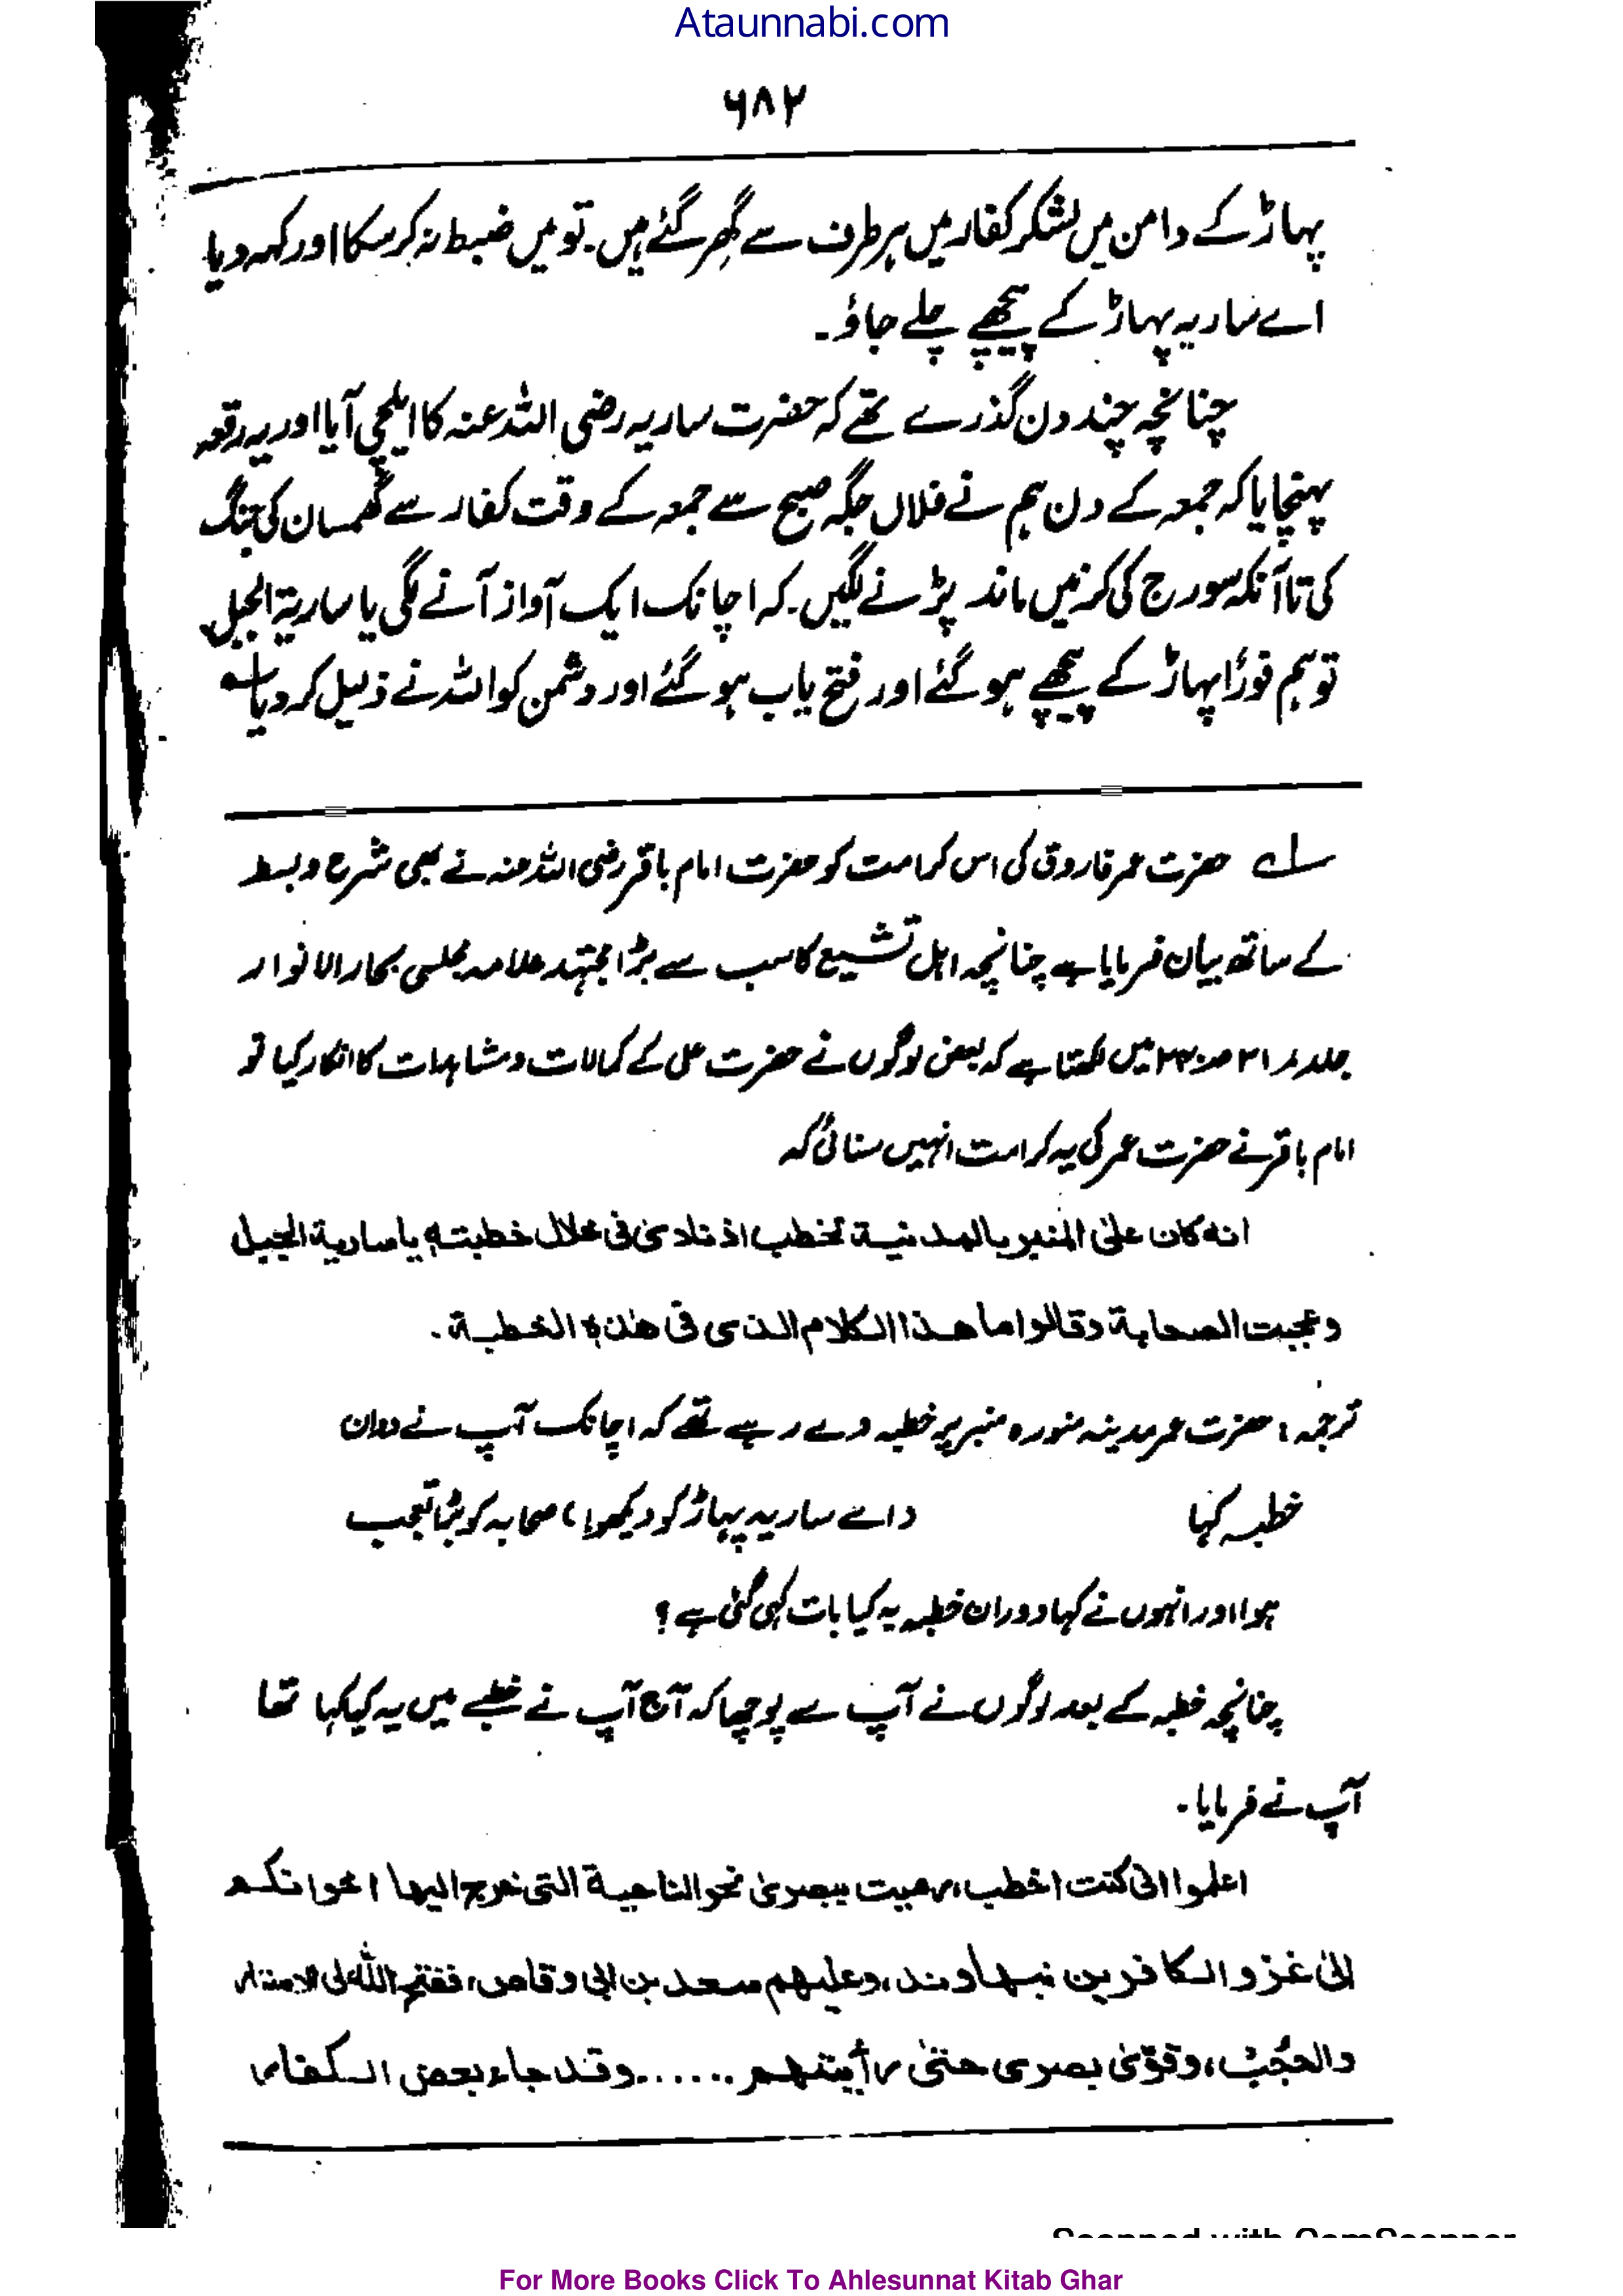 Ataunnabi.com
۶۸۲
پہاڑ کے دامن میں لشکر کفار میں ہر طرف سے گھر گئے ہیں۔ تو میں ضبط نہ کر سکا اور کہہ دیا
اے ساریہ پہاڑ کے پیچھے چلے جاؤ۔
چنانچہ چند دن گذرے تھے کہ حضرت ساریہ رضی اللہ عنہ کا ایلچی آیا اور یہ رقعہ
پہنچایا کہ جمعہ کے دن ہم نے فلاں جگہ صبح سے جمعہ کے وقت کفار سے گھمسان کی جنگ
کی تا آنکہ سورج کی کرنیں ماند پڑنے لگیں۔ کہ اچانک ایک آواز آنے لگی یا ساریۃ الجبل
تو ہم فورًا پہاڑ کے پیچھے ہو گئے اور فتح یاب ہو گئے اور دشمن کو اللہ نے ذلیل کر دیا لہ
لہ حضرت عمر فاروق کی اس کرامت کو حضرت امام باقر رضی اللہ عنہ نے بھی شرح و بسط
کے ساتھ بیان فرمایا ہے چنانچہ اہل تشیع کا سب سے بڑا مجتہد علامہ مجلسی بحار الانوار
جلد ۲۱ میں لکھتا ہے کہ بعض لوگوں نے حضرت علی کے کمالات و مشاہدات کا انکار کیا تو
امام باقر نے حضرت عمر کی یہ کرامت انہیں سنائی کہ
انه كان على المنبر بالمدنية تخطب اذ نادى فى خلال خطبته يا سارية الجبل
وعجبت الصحابة وقالوا ما هذا الكلام الذى فى هذه الخطبة.
ترجمہ: حضرت عمر مدینہ منورہ منبر پر خطبہ دے رہے تھے کہ اچانک آپ نے دوران
خطبہ کہا (اے ساریہ پہاڑ کو دیکھو!) صحابہ کو بڑا تعجب
ہوا اور انہوں نے کہا دوران خطبہ یہ کیا بات کہی گئی ہے؟
چنانچہ خطبہ کے بعد لوگوں نے آپ سے پوچھا کہ آج آپ نے خطبے میں یہ کیا کہا تھا
آپ نے فرمایا۔
اعلموا انى كنت اخطب، رميت ببصرى نحو الناحية التى خرج اليها اخوانكم
الى غزو الكافرين نبهاوند، وعليهم سعد بن ابى وقاص، ففتح الله لى الاستار
والحجب، وقوّى بصرى حتى رأيتهم ...... وقد جاء بعض الكفار
Scanned with CamScanner
For More Books Click To Ahlesunnat Kitab Ghar